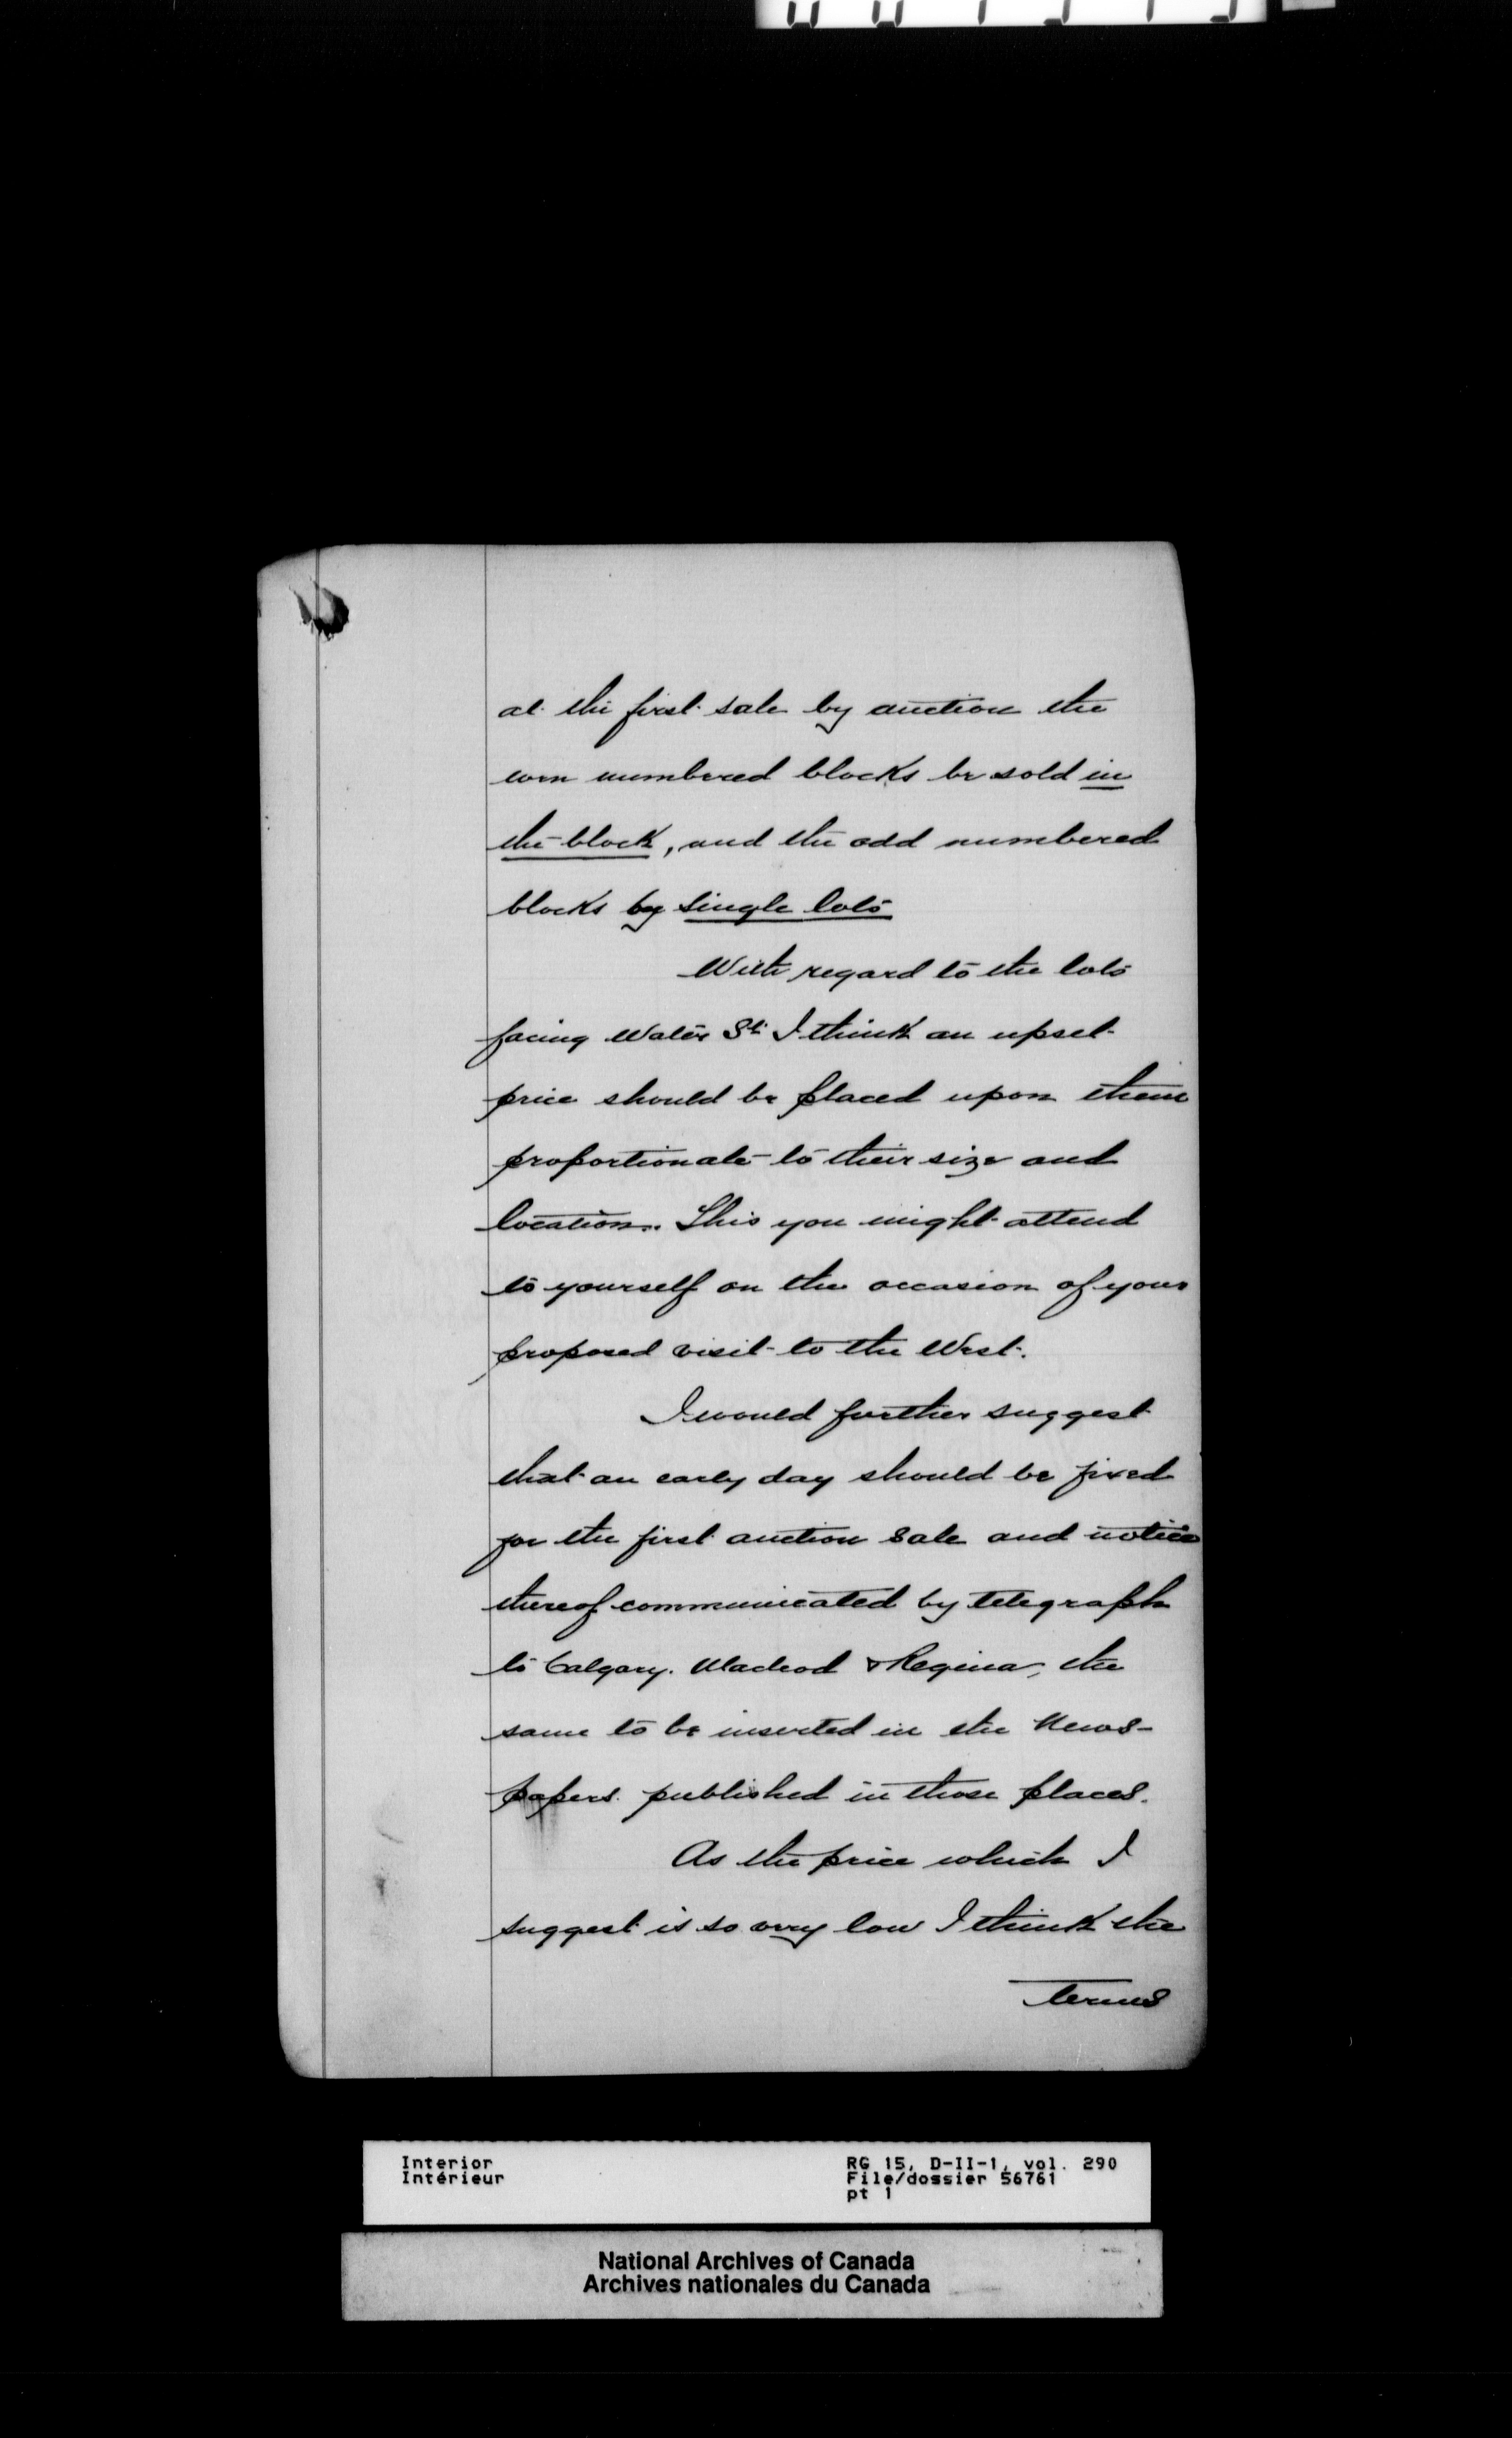 at the first sale by auction the
even numbered blocks be sold in
the block, and the odd numbered
blocks by single lots
With regard to the lots
facing Water St. I think an upset
price should be placed upon them
proportionate to their size and
location. This you might attend
to yourself on the occasion of your
proposed visit to the West.
I would further suggest
that an early day should be fixed
for the first auction sale and notice
thereof communicated by telegraph
to Calgary. Macleod & Regina, the
same to be inserted in the News-
papers published in those places.
As the price which I
suggest is so very low I think the
terms
Interior
Intérieur
RG 15, D-II-1, vol. 290
File/dossier 56761
pt 1
National Archives of Canada
Archives nationales du Canada